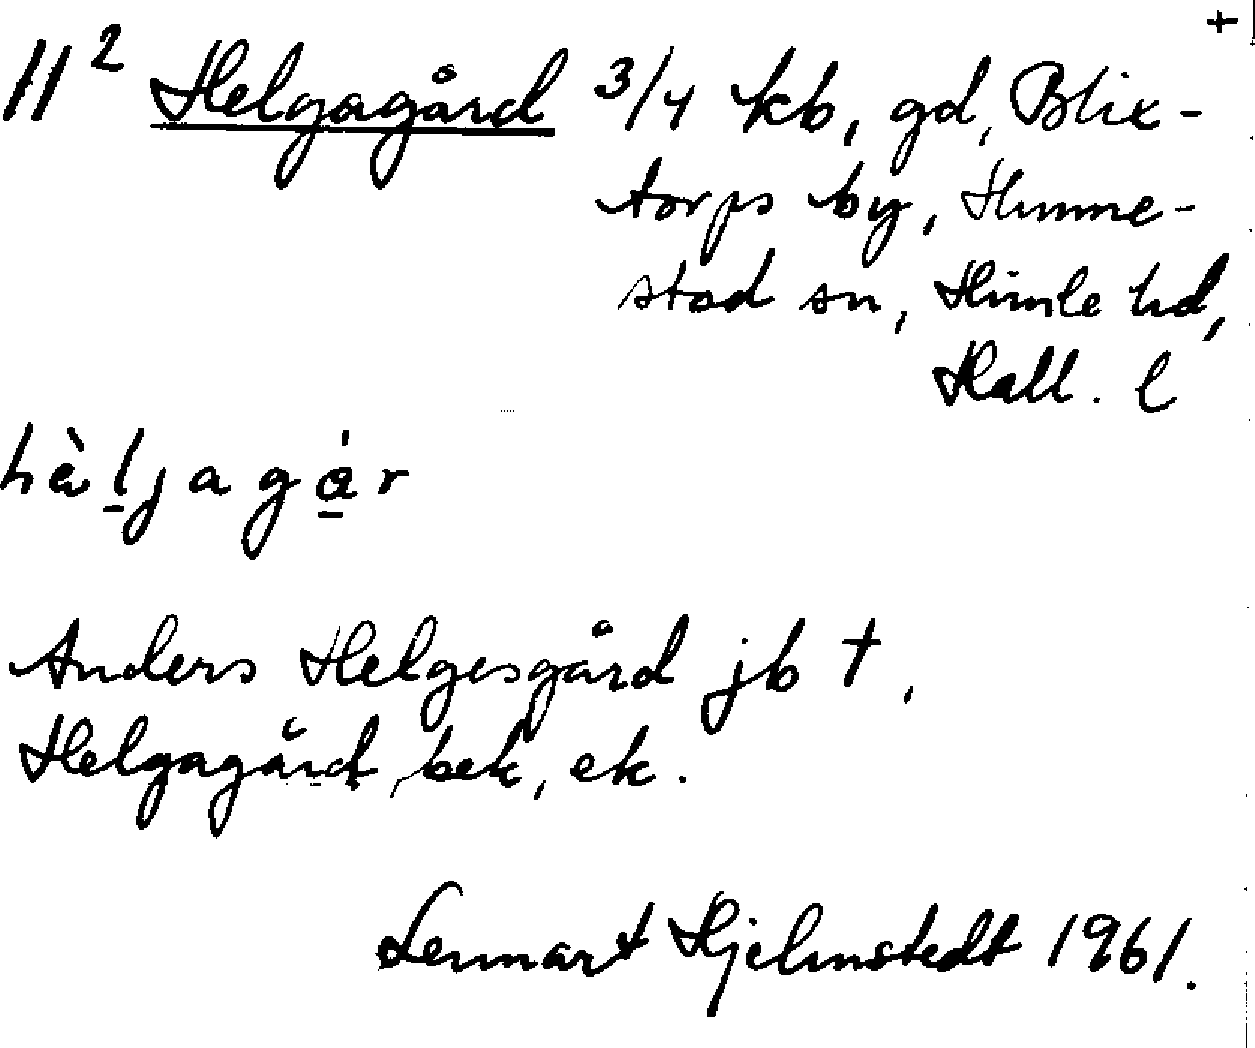 +
11² Helgagård 3/4 kb, gd, Blix-
torps by, Hunne-
stad sn, Himle hd,
Hall. l
hàljagår
Anders Helgesgård jb †,
Helgagård, bek, ek.
Lennart Hjelmstedt 1961.